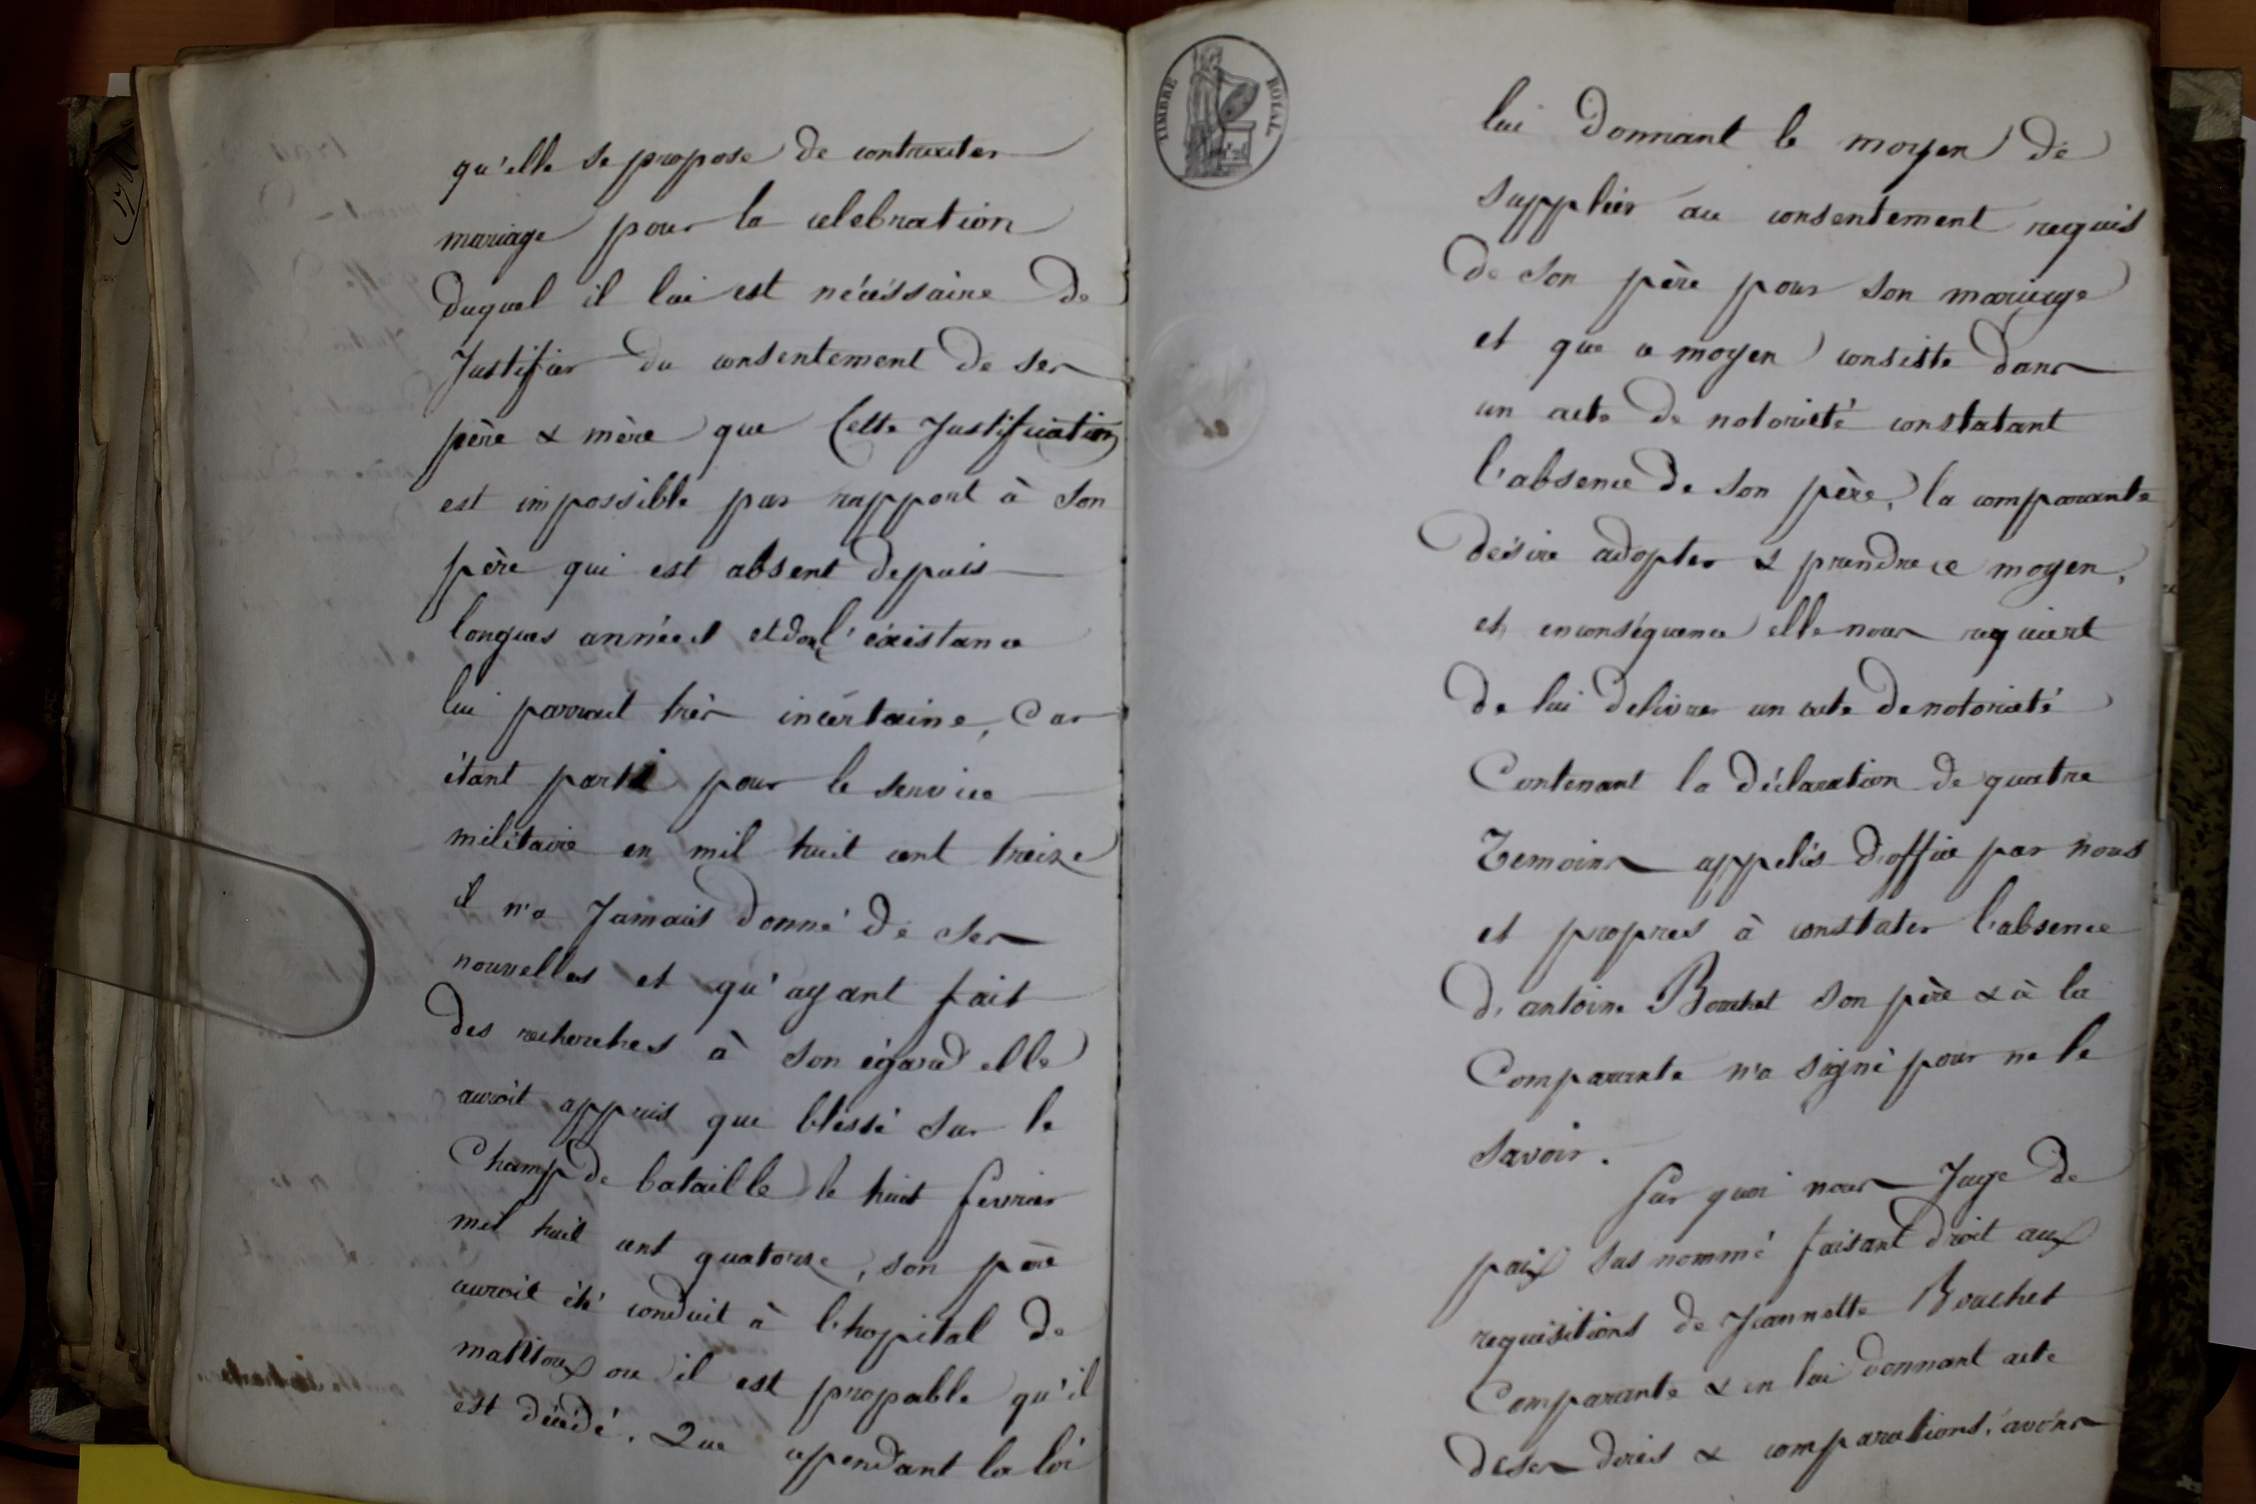 qu'elle se propose de contracter
mariage pour la celebration
duquel il lui est nécéssaire de
Justifier du consentement de ses
père & mère que Cette Justification
est impossible par rapport à son
père qui est absent depuis
longues années et don l'éxistance
lui parrait très incértaine, Car
étant parti pour le service
militaire en mil huit cent treize
il n'a Jamais donné de ses
nouvelles et qu'ayant fait
des recherches à son égard elle
auroit appris que bléssé sur le
Champ de bataille le huit fevrier
mil huit cent quatorze, son père
auroit été conduit à l'hopital de
ou il est propable qu'il
est décédé. Que cependant la loi
TIMBRE ROYAL
lui donnant le moyen de
suppléer au consentement requis
de son père pour son mariage
et que ce moyen consiste dans
un acte de notorieté constatant
l'absence de son père, la comparante
désire adopter & prendre ce moyen,
et enconséquence elle nous requiert
de lui delivrer un acte de notorieté
Contenant la déclaration de quatre
Temoins appelés d'office par nous
et propres à constater l'absence
d'antoine Bouchet son père & à la
Comparante n'a signé pour ne le
savoir.
Sur quoi nous Juge de
paix sus nommé faisant droit aux
requisitions de Jeannette Bouchet
Comparante & en lui donnant acte
de ses dires & comparations, avons